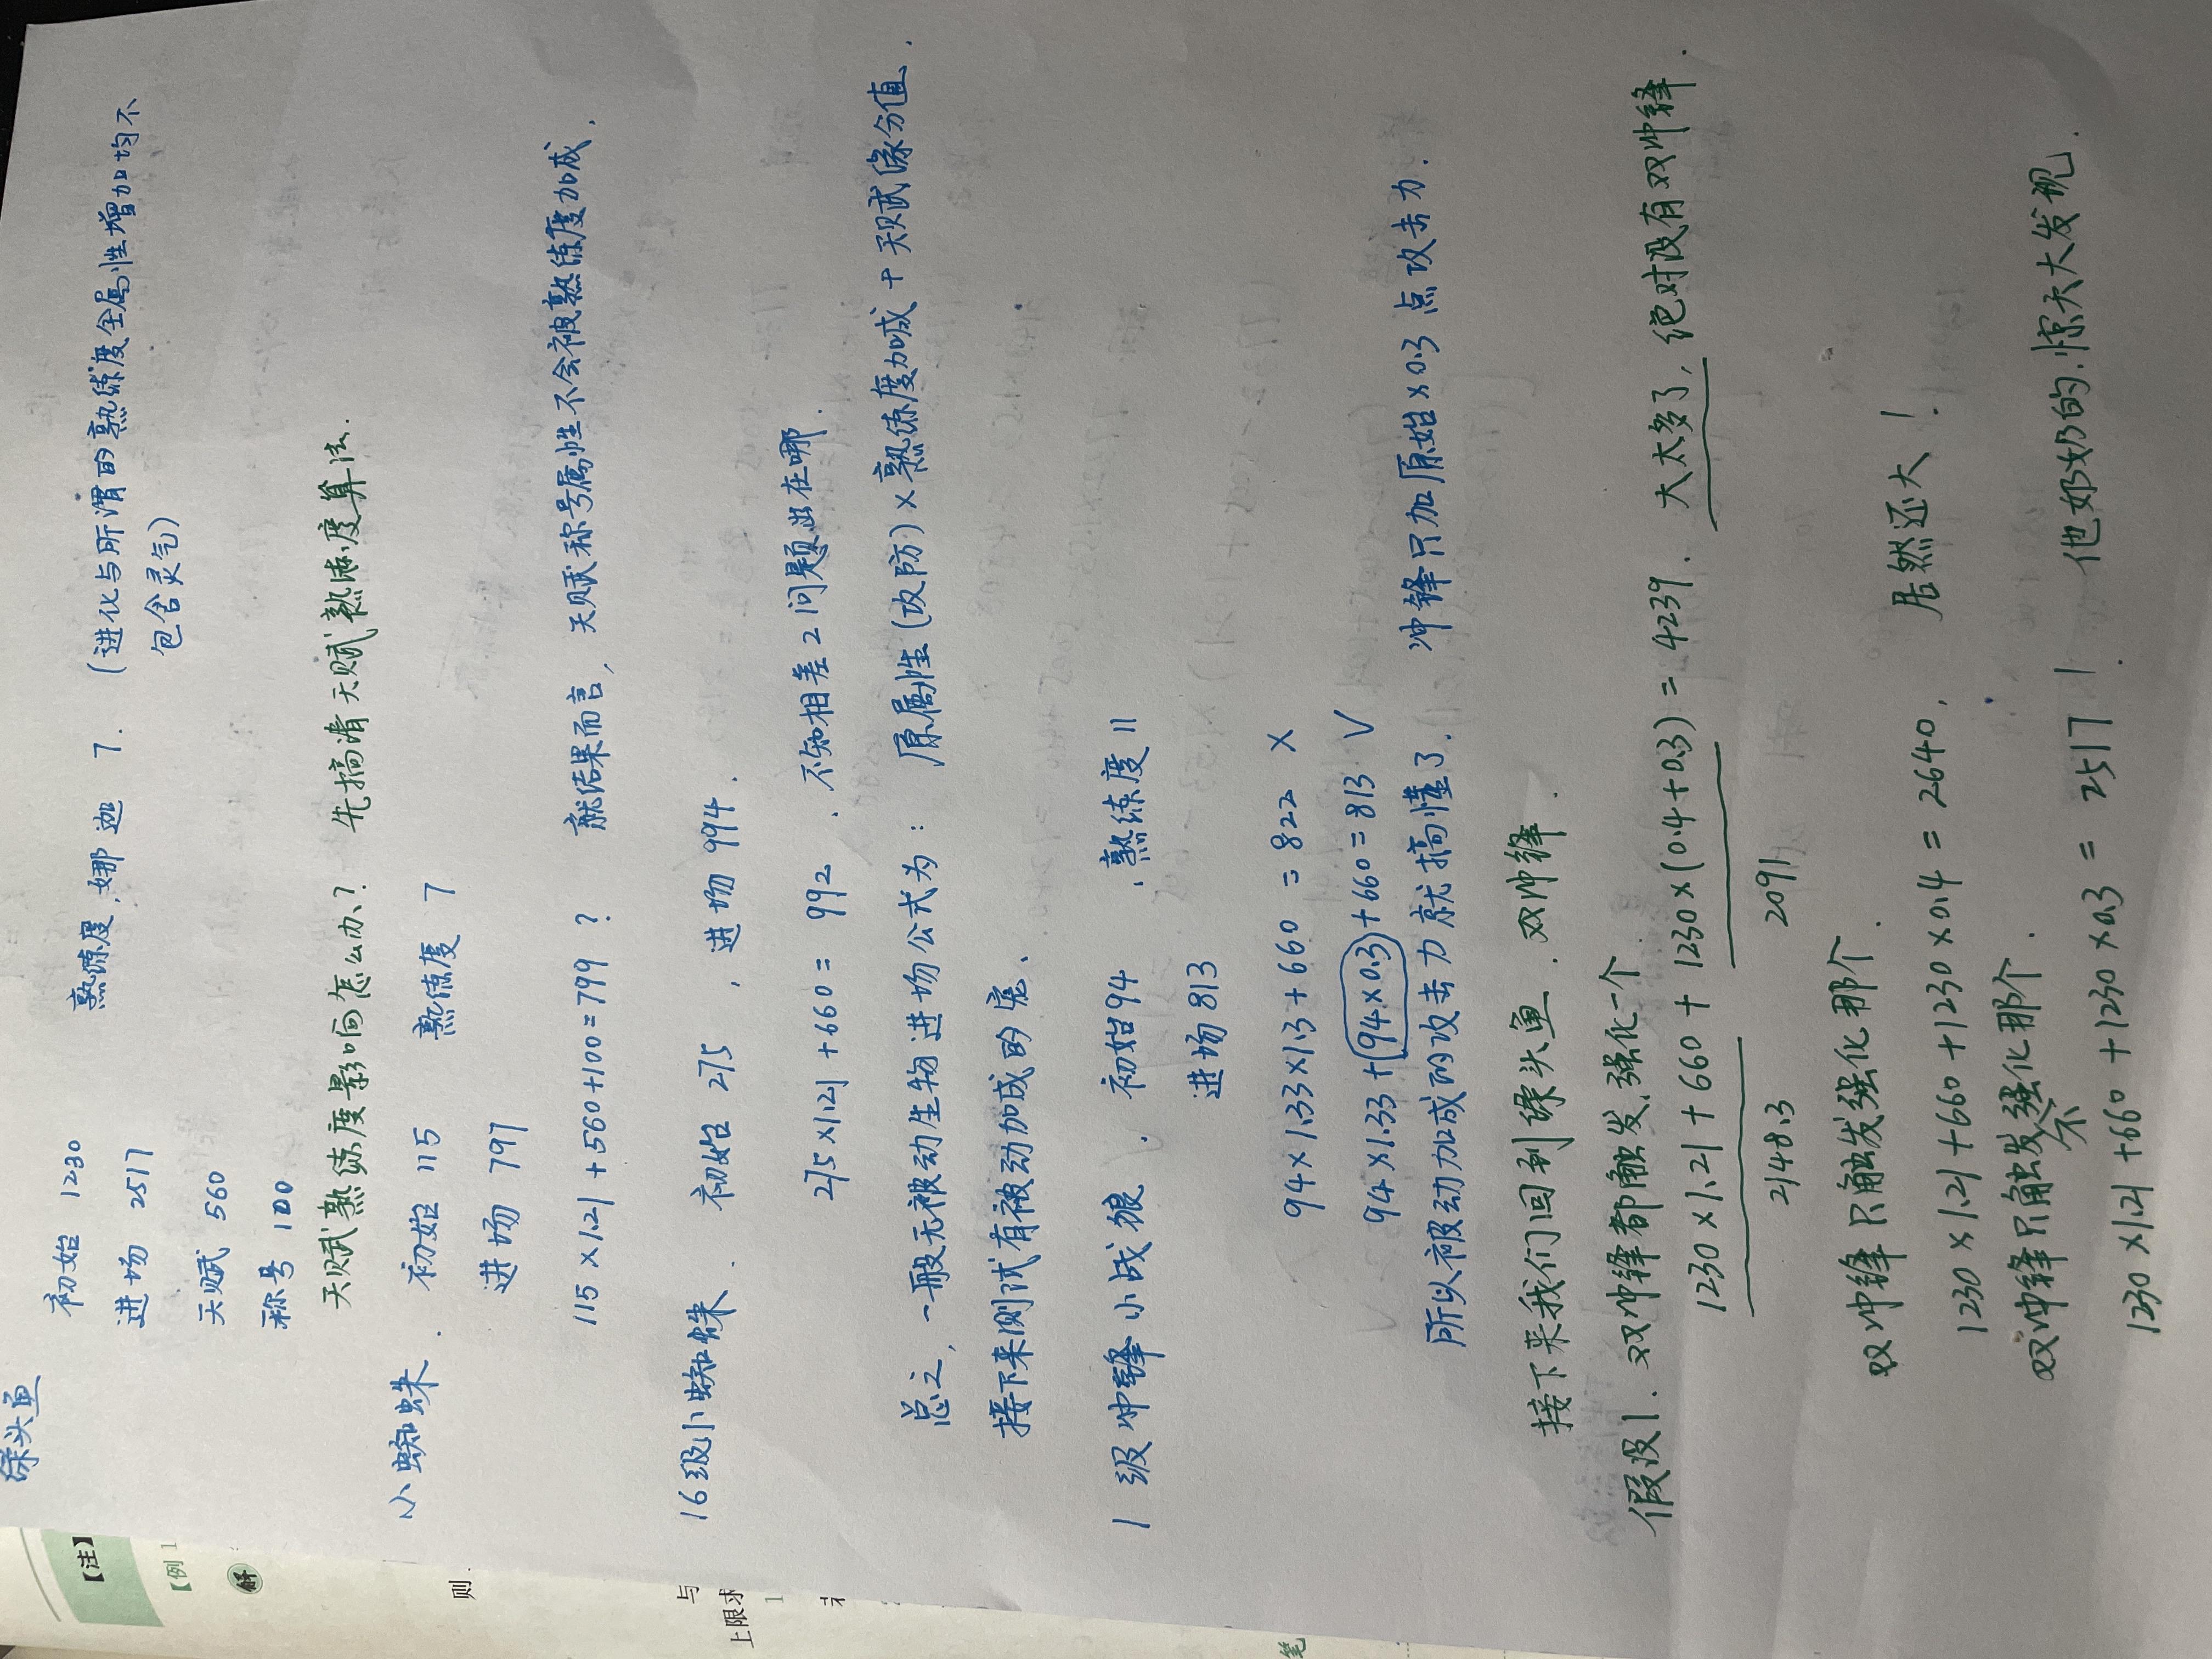 绿头鱼
初始 1230 熟练度,娜迦 7. (进化与所谓的熟练度全属性增加均不
进场 2517 包含灵气)
天赋 560
称号 100
天赋熟练度影响怎么办? 先搞清天赋熟练度算法.
小蜘蛛. 初始 115 熟练度 7
进场 797
115×1.21+560+100=799 ? 就结果而言, 天赋称号属性不会被熟练度加成.
16级小蜘蛛、 初始 275 , 进场 994.
275×1.21+660= 992 . 不知相差2问题出在哪.
总之,一般无被动生物进场公式为: 原属性(攻防)×熟练度加成+天赋缘分值.
接下来测试有被动加成的宠.
1级冲锋小战狼. 初始94 .熟练度 11
进场813
94×1.33×1.3+660 =822 ×
94×1.33+(94×0.3)+660=813 √
所以被动加成的攻击力就搞懂了. 冲锋只加原始×0.3点攻击力.
接下来我们回到绿头鱼.双冲锋.
假设1.双冲锋都触发,强化一个
1230×1.21+660+1230×(0.4+0.3)=4239. 太太多了,绝对没有双冲锋.
2148.3 2091
双冲锋只触发强化那个.
1230×1.21+660+1230×0.4=2640, 居然还大!
双冲锋只触发不强化那个.
1230×1.21+660+1230×0.3=2517! 他奶奶的.惊天大发现.
【注】
【例1
解
则
与
上限求
1
笔